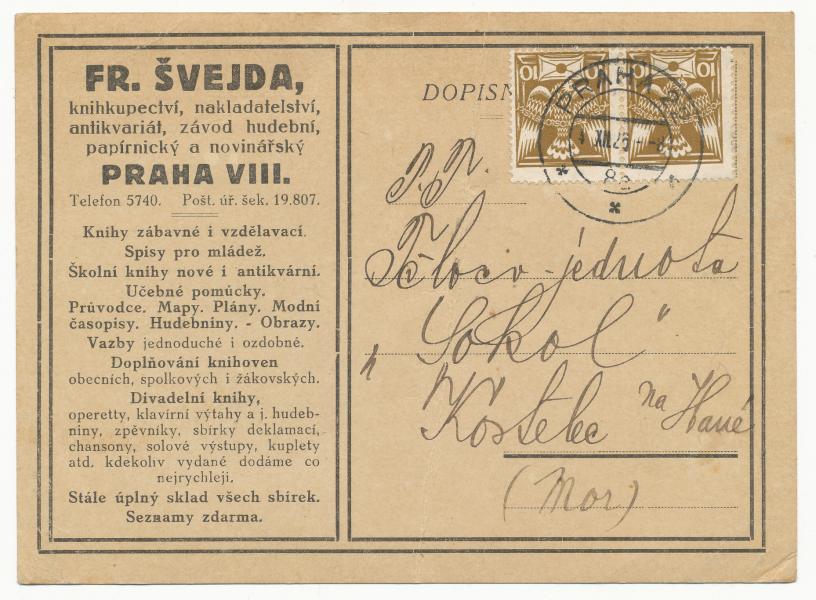 FR. ŠVEJDA,
knihkupectví, nakladatelství,
antikvariát, závod hudební,
papírnický a novinářský
PRAHA VIII.
Telefon 5740. Pošt. úř. šek. 19.807.
Knihy zábavné i vzdělavací.
Spisy pro mládež.
Školní knihy nové i antikvární.
Učebné pomůcky.
Průvodce. Mapy. Plány. Modní
časopisy. Hudebniny. - Obrazy.
Vazby jednoduché i ozdobné.
Doplňování knihoven
obecních, spolkových i žákovských.
Divadelní knihy,
operetty, klavírní výtahy a j. hudeb-
niny, zpěvníky, sbírky deklamací,
chansony, solové výstupy, kuplety
atd. kdekoliv vydané dodáme co
nejrychleji.
Stále úplný sklad všech sbírek.
Seznamy zdarma.
DOPISN
10 10
PRAHA 25
XII.25
8a
P. T.
Tělocv. jednota
„Sokol“
v Kostelec na Hané
(Mor)